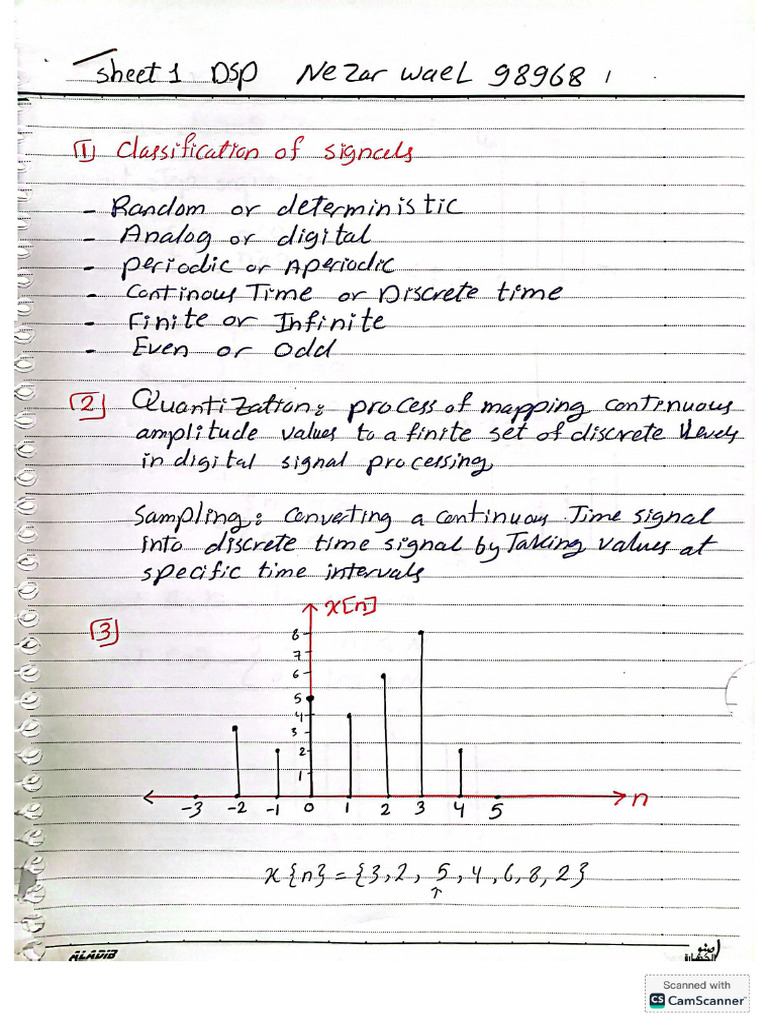 sheet 1 DSP Nezar wael 98968 1
1 Classification of signals
- Random or deterministic
- Analog or digital
- periodic or Aperiodic
- Continous Time or Discrete time
- Finite or Infinite
- Even or Odd
2 Quantization: process of mapping continuous
amplitude values to a finite set of discrete levels
in digital signal processing
Sampling: Converting a continuous Time signal
into discrete time signal by Taking values at
specific time intervals
3
x[n]
8
7
6
5
4
3
2
1
-3 -2 -1 0 1 2 3 4 5
n
x{n} = {3, 2, 5, 4, 6, 8, 2}
↑
ALADIB
Scanned with
CS CamScanner